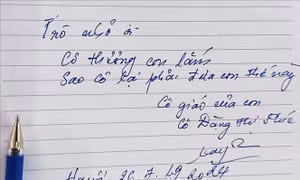 Trò nhỏ ơi
Cô thương con lắm
Sao cô lại phải đưa con thế này
Cô giáo của con
Cô Đặng Thị Huế
26.7.2024